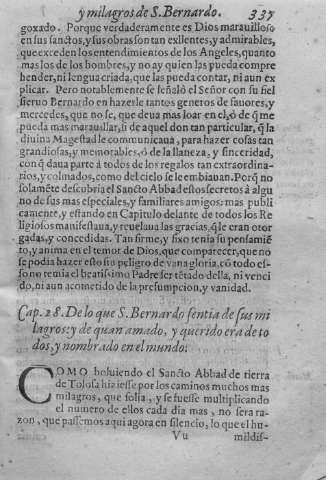 y milagros de S. Bernardo. 337
goxado. Porque verdaderamente es Dios marauilloso
en sus sanctos, y sus obras son tan exllentes, y admirables,
que exceden los entendimientos de los Angeles, quanto
mas los de los hombres, y no ay quien las pueda compre
hender, ni lengua criada, que las pueda contar, ni aun ex
plicar. Pero notablemente se señaló el Señor con su fiel
sieruo Bernardo en hazerle tantos generos de fauores, y
mercedes, que no se, que deua mas loar en el, ó de q̃ me
pueda mas marauillar, si de aquel don tan particular, q̃ la
diuina Magestad le communicaua, para hazer cosas tan
grandiosas, y memorables, ó de la llaneza, y sinceridad,
con q̃ daua parte á todos de los regalos tan extraordina-
rios, y colmados, como del cielo se le embiauan. Porq̃ no
solamẽte descubria el Sancto Abbad estos secretos à algu
no de sus mas especiales, y familiares amigos: mas publi
camente, y estando en Capitulo delante de todos los Re
ligiosos manifestaua, y reuelaua las gracias, q̃ le eran otor
gadas, y concedidas. Tan firme, y fixo tenia su pensamiẽ
to, y anima en el temor de Dios, que comparecer, que no
se podia hazer esto sin peligro de vana gloria, cõ todo es-
so no temia el beatissimo Padre ser tẽtado della, ni venci
do, ni aun acometido de la presumpcion, y vanidad.
Cap. 28. De lo que S. Bernardo sentia de sus mi
lagros: y de quan amado, y querido era de to
dos, y nombrado en el mundo.
COMO boluiendo el Sancto Abbad de tierra
de Tolosa hiziesse por los caminos muchos mas
milagros, que solia, y se fuesse multiplicando
el numero de ellos cada dia mas, no sera ra-
zon, que passemos aqui agora en silencio, lo que el hu-
Vu mildis-